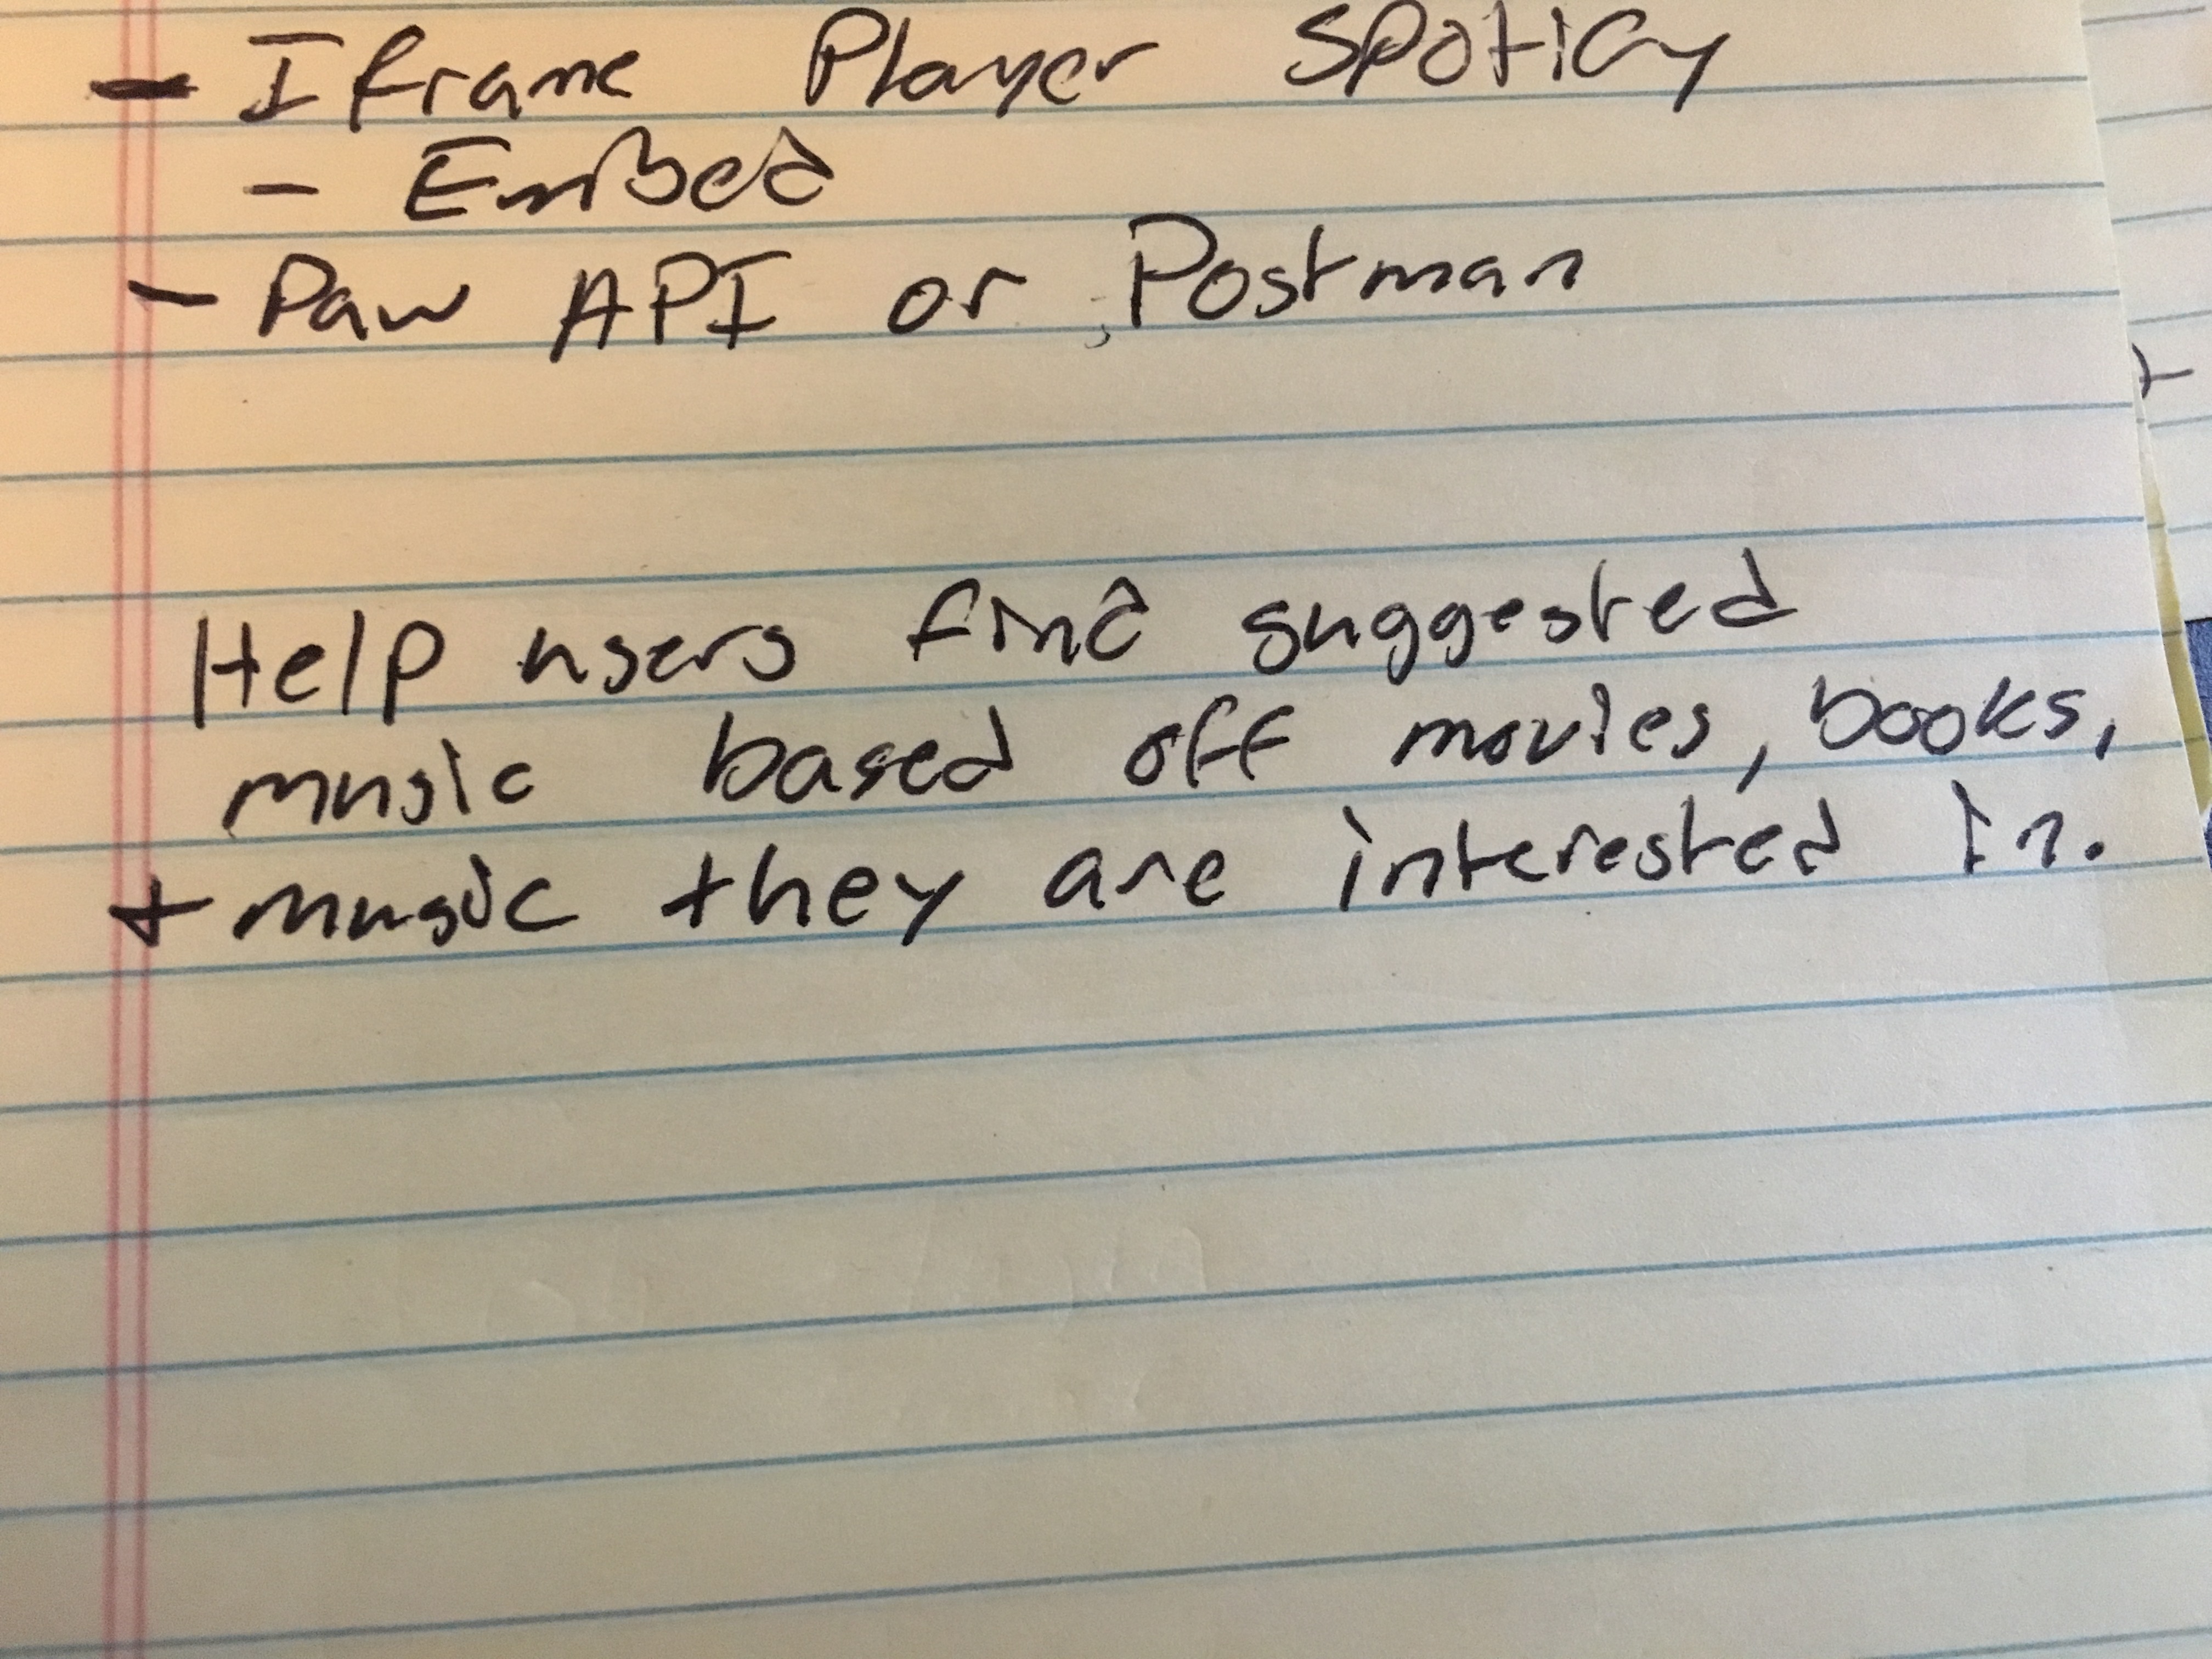 - Iframe Player Spotify
- Embed
- Paw API or Postman
Help users find suggested
music based off movies, books,
+ music they are interested in.